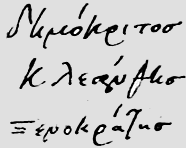 Δημόκριτοσ
Κλεάνθησ
Ξενοκράτησ